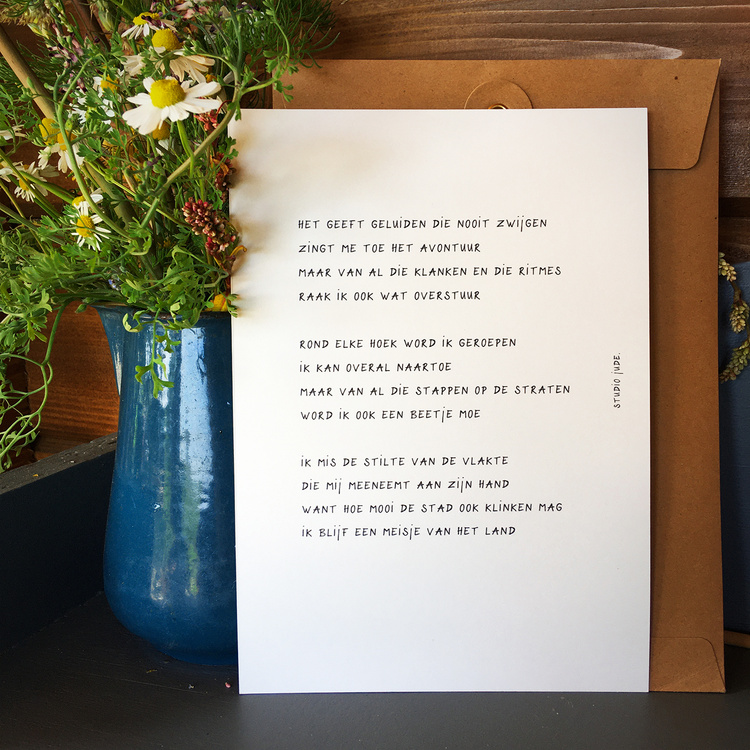 HET GEEFT GELUIDEN DIE NOOIT ZWIJGEN
ZINGT ME TOE HET AVONTUUR
MAAR VAN AL DIE KLANKEN EN DIE RITMES
RAAK IK OOK WAT OVERSTUUR
ROND ELKE HOEK WORD IK GEROEPEN
IK KAN OVERAL NAARTOE
MAAR VAN AL DIE STAPPEN OP DE STRATEN
WORD IK OOK EEN BEETJE MOE
IK MIS DE STILTE VAN DE VLAKTE
DIE MIJ MEENEEMT AAN ZIJN HAND
WANT HOE MOOI DE STAD OOK KLINKEN MAG
IK BLIJF EEN MEISJE VAN HET LAND
STUDIO JUDE.